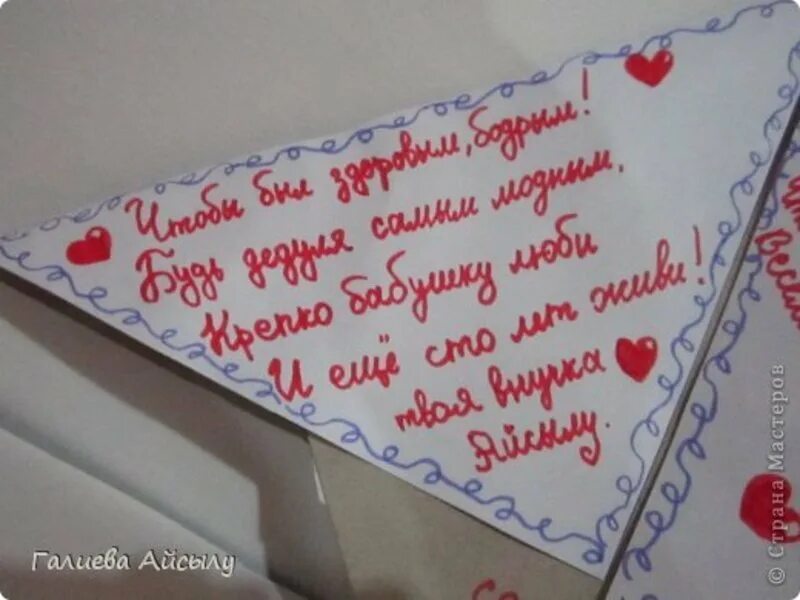 Чтобы был здоровым, бодрым!
Будь дедуля самым модным.
Крепко бабушку люби
И ещё сто лет живи!
твоя внучка
Айсылу.
Галиева Айсылу
© Страна Мастеров